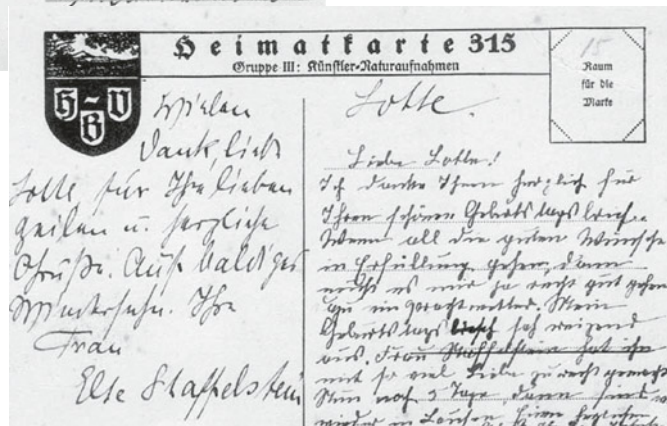 Heimatkarte 315
Gruppe III: Künstler-Naturaufnahmen
H-V
B
15
Raum
für die
Marke
Vielen
Dank, liebe
Lotte, für Ihre lieben
Zeilen u. herzliche
Grüße. Auf baldiges
Wiedersehn. Ihre
Frau
Else Staffelstein
Lotte.
Liebe Lotte!
Ich danke Ihnen herzlich für
Ihren schönen Geburtstagsbrief.
Wenn all die guten Wünsche
in Erfüllung gehen, dann
muß es mir ja recht gut gehen
Mein
Geburtstags sah reizend
aus. Frau Staffelstein hat ihn
mit so viel Liebe zurecht gemacht
Nun noch 5 Tage, dann sind
wieder in